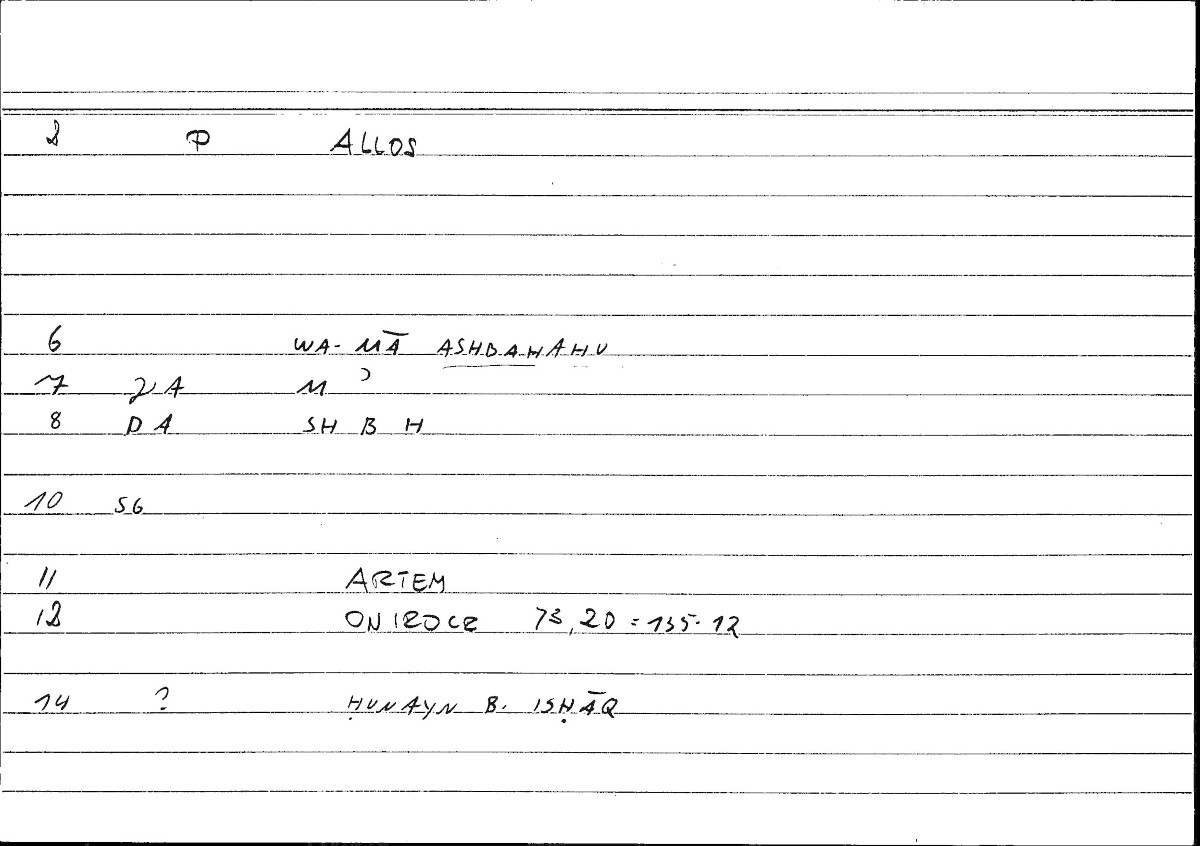 2 P ALLOS
6 WA-MĀ ASHBAHAHU
7 γA M ʾ
8 DA SH B H
10 SG
11 ARTEM
12 ONIROCR 73,20 = 135.12
14 ? ḤUNAYN B. ISḤĀQ